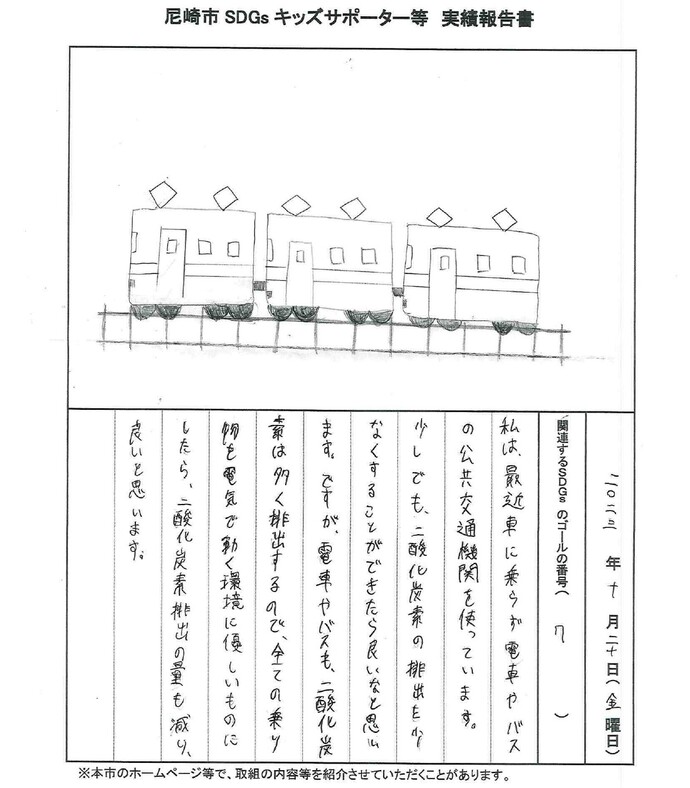 尼崎市 SDGs キッズサポーター等 実績報告書
二〇二三年十月二十日(金曜日)
関連するSDGsのゴールの番号( 7 )
私は、最近車に乗らず電車やバス
の公共交通機関を使っています。
少しでも、二酸化炭素の排出を少
なくすることができたら良いなと思い
ます。ですが、電車やバスも、二酸化炭
素は多く排出するので、全ての乗り
物を電気で動く環境に優しいものに
したら、二酸化炭素排出の量も減り、
良いと思います。
※本市のホームページ等で、取組の内容等を紹介させていただくことがあります。